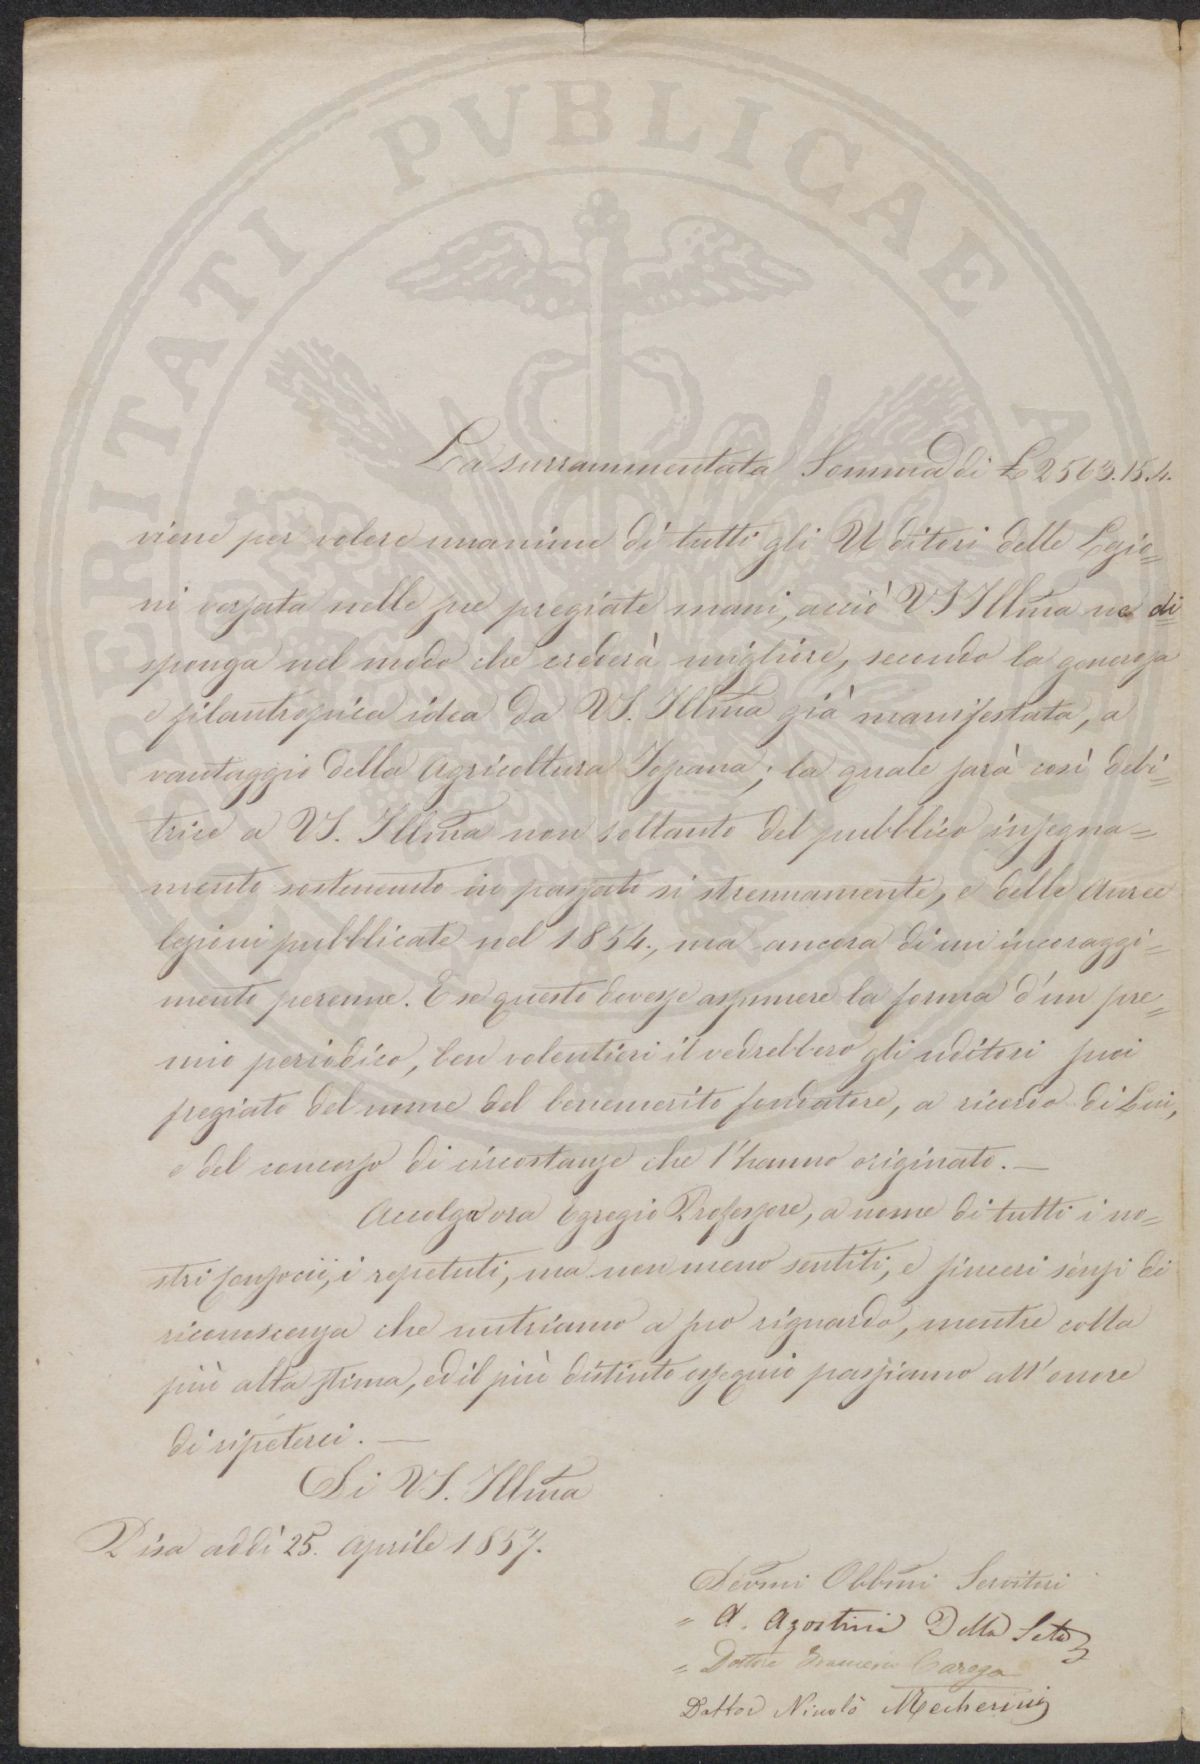 La surrammentata Somma di £ 2503.15.4.
viene per volere unanime di tutti gli Uditori delle Lezio=
ni versata nelle sue pregiate mani, acciò VS Illma ne di
sponga nel modo che crederà migliore, secondo la generosa
e filantropica idea da VS. Illma già manifestata, a
vantaggio della Agricoltura Toscana; la quale sarà così debi=
trice a VS. Illma non soltanto del pubblico insegna=
mento sostenuto in passato si strenuamente, e delle Auree
lezioni pubblicate nel 1854., ma ancora di un incoraggi=
mento perenne. E se questo dovesse assumere la forma d'un pre=
mio periodico, ben volentieri il vedrebbero gli uditori suoi
fregiato del nome del benemerito fondatore, a ricordo di Lui,
e del concorso di circostanze che l'hanno originato. —
Accolga ora Egregio Professore, a nome di tutti i no=
stri consocii, i repetuti, ma non meno sentiti, e sinceri sensi di
riconoscenza che nutriamo a suo riguardo, mentre colla
più alta stima, ed il più distinto ossequio passiamo all'onore
di ripeterci. —
Di VS. Illma
Pisa addì 25. Aprile 1857.
Devmi Obbmi Servitori
" A. Agostini Della Seta
" Dottore Francesco Carega
Dottor Nicolò Mecherini
PROSPERITATI PVBLICAE